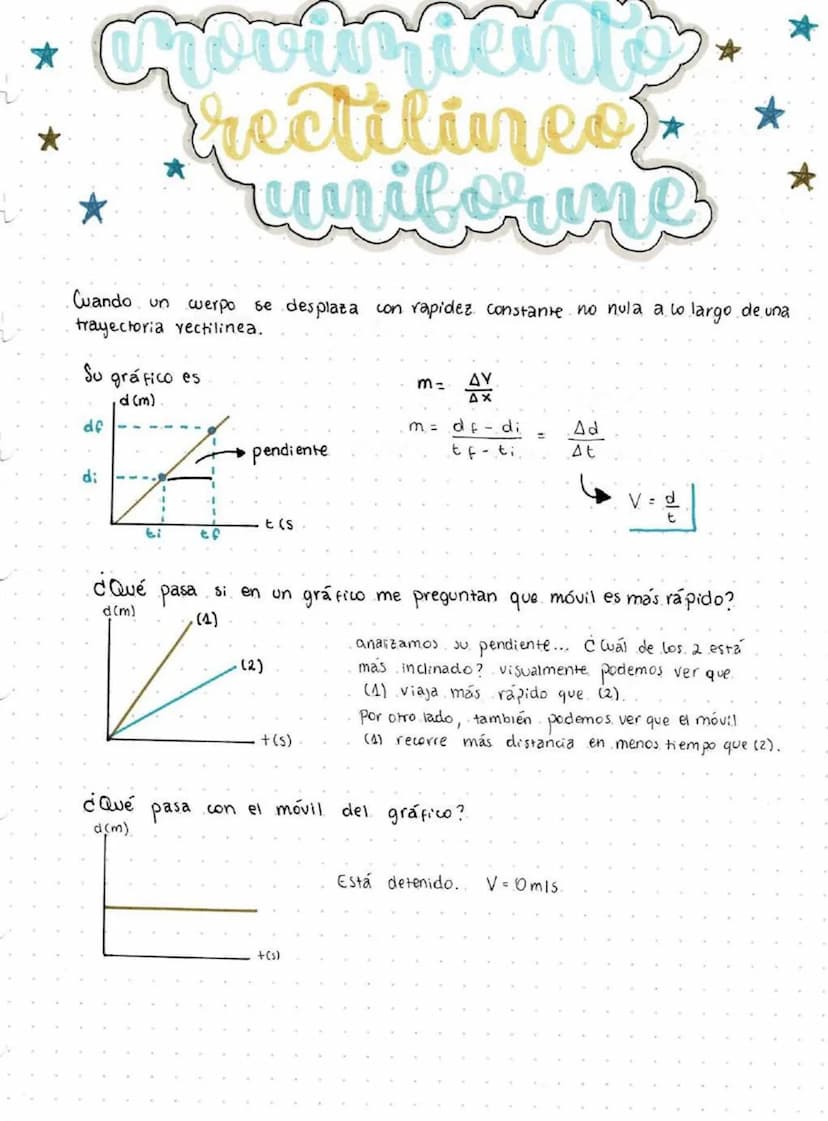 movimiento
rectilíneo
uniforme
Cuando un cuerpo se desplaza con rapidez constante no nula a lo largo de una
trayectoria rectilinea.
Su gráfico es
d(m)
df
di
ti
tf
t(s
pendiente
m = ΔY/ΔX
m = df - di / tf - ti = Δd/Δt
V = d/t
¿Qué pasa si en un gráfico me preguntan que móvil es más rápido?
d(m)
(1)
(2)
t(s)
anaizamos su pendiente... ¿Cuál de los 2 está
más inclinado? visualmente podemos ver que
(1) viaja más rápido que (2).
Por otro lado, también podemos ver que el móvil
(1) recorre más distancia en menos tiempo que (2).
¿Qué pasa con el móvil del gráfico?
d(m)
t(s)
Está detenido. V = 0m/s